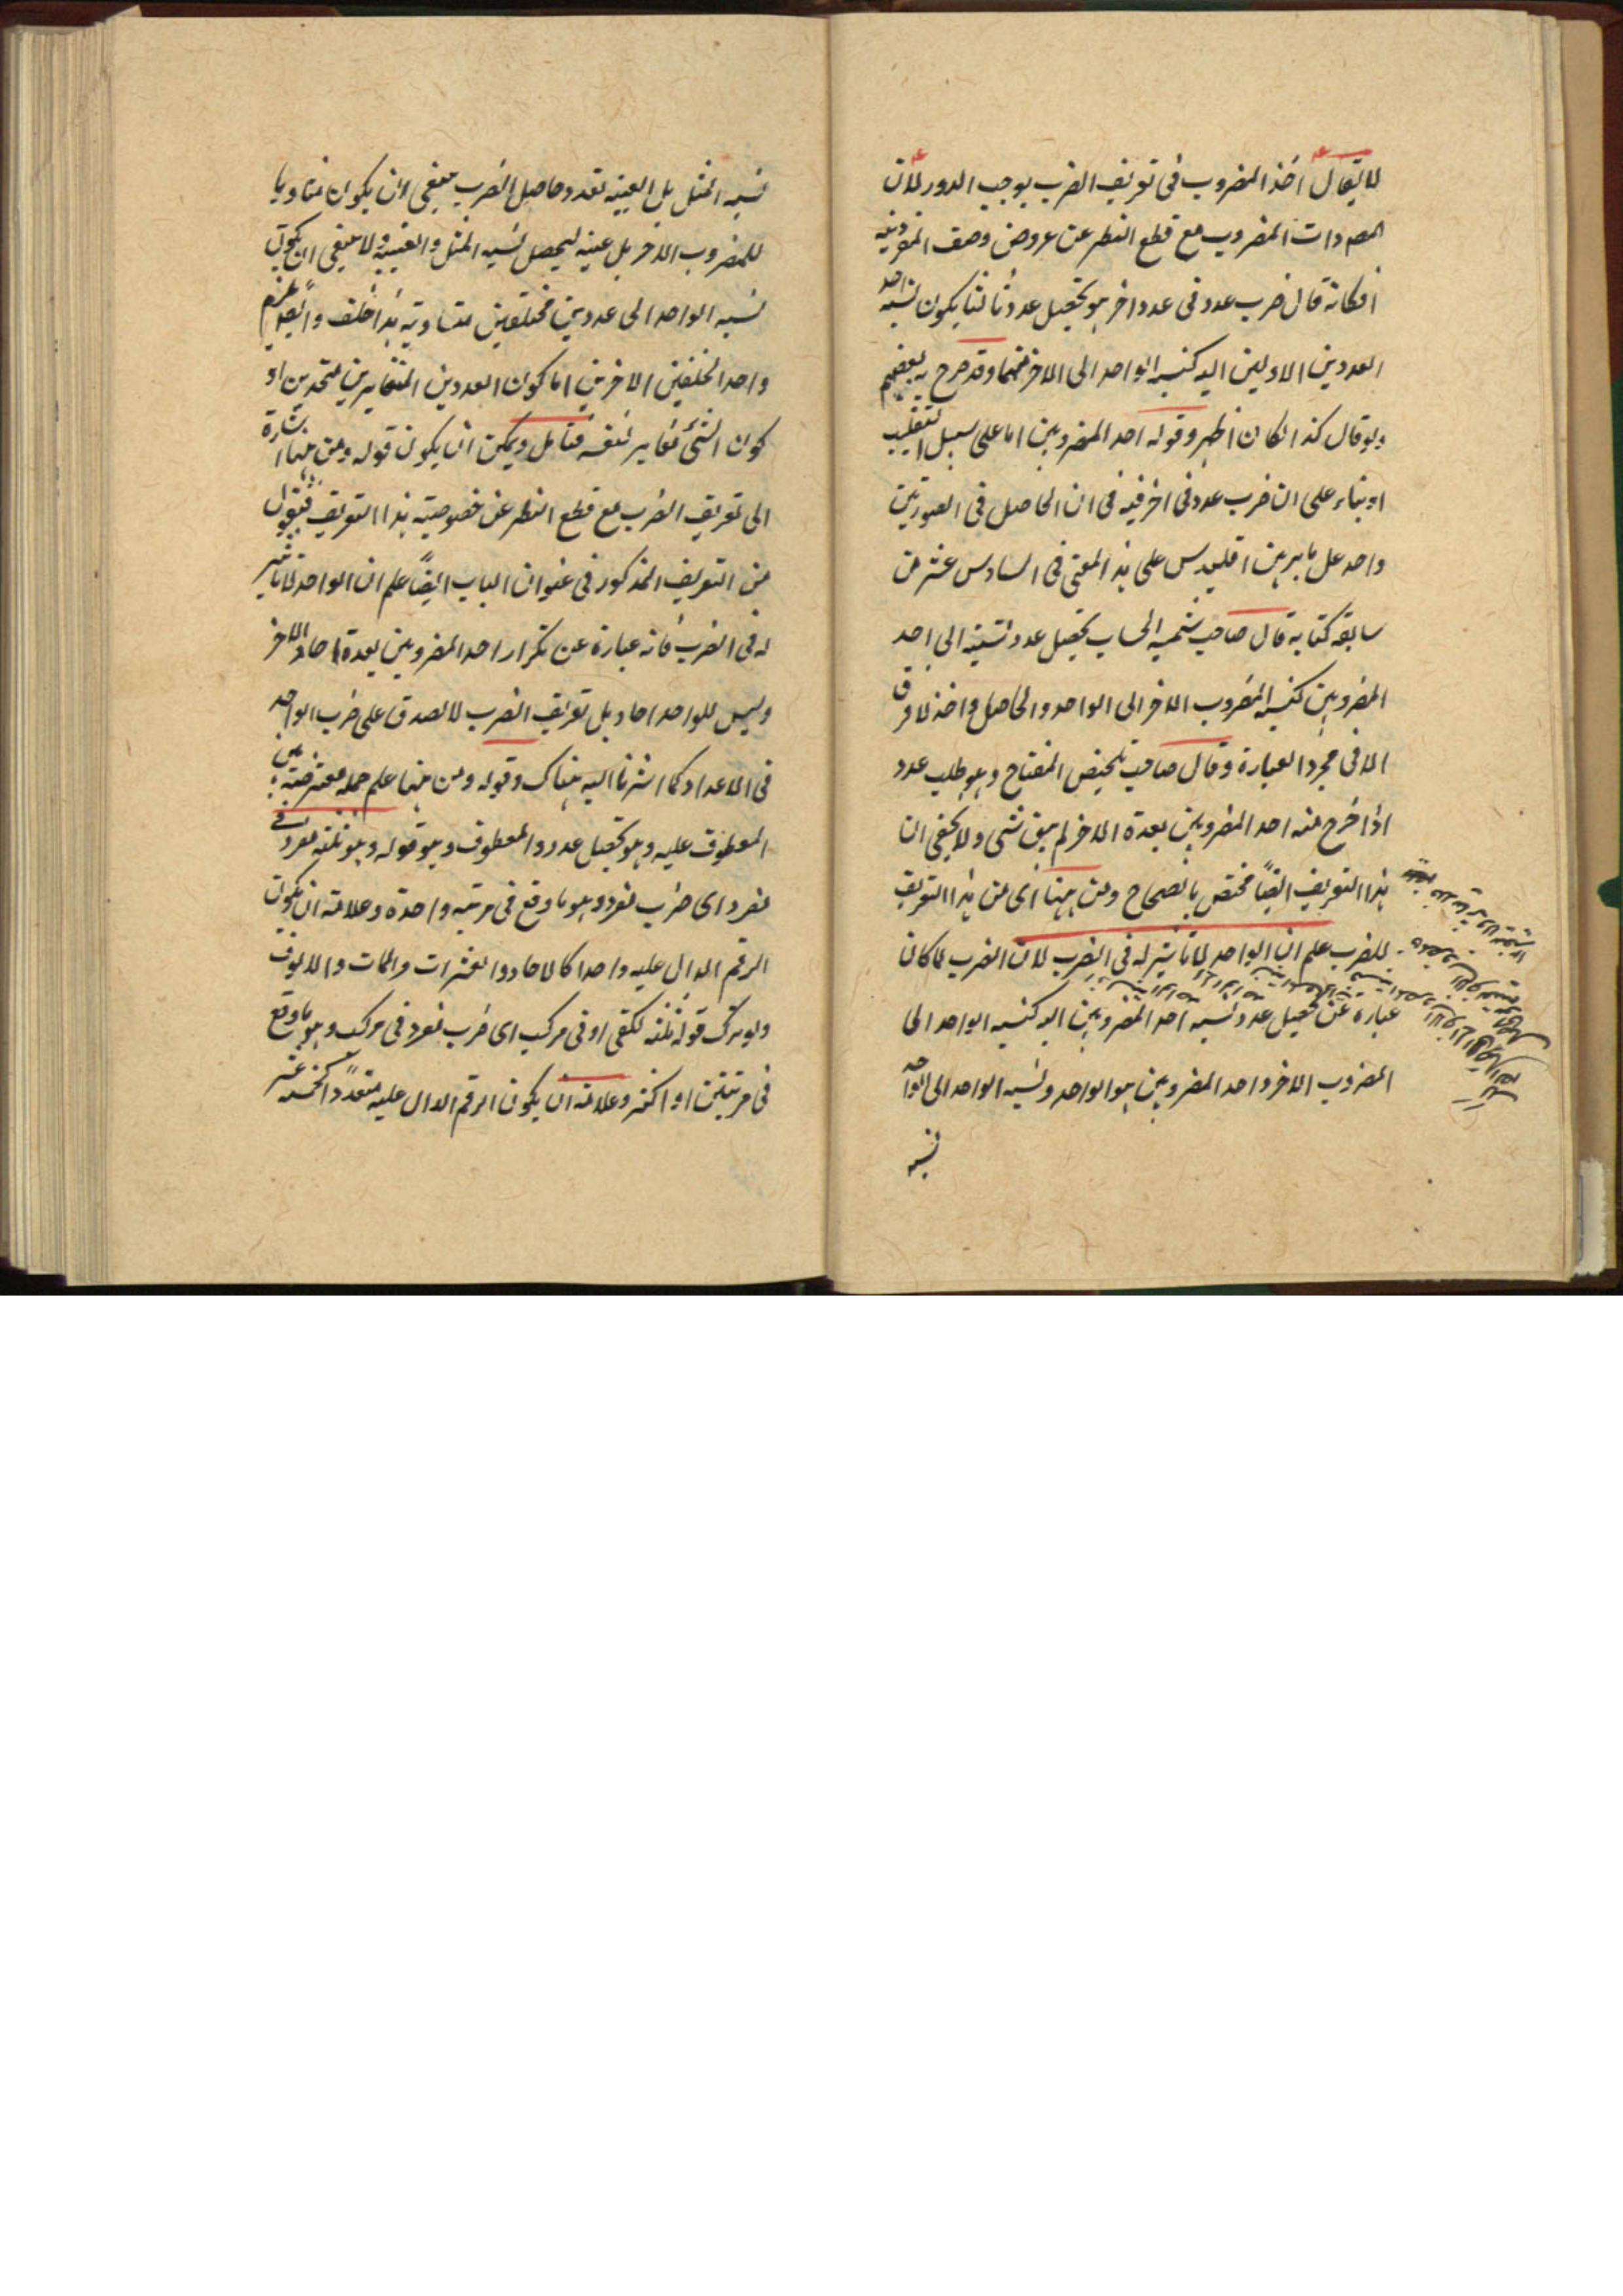 لا يقال اخذ المضروب فى تعريف الضرب يوجب الدور لان
المراد ذات المضروب مع قطع النظر عن عروض وصف المضروبية
فكانه قال ضرب عدد فى عدد اخر هو تحصيل عدد ثالث يكون نسبة احد
العددين الاولين اليه كنسبة الواحد الى الاخر منهما وقد صرح به بعضهم
ولو قال كذا لكان اظهر وقوله احد المضروبين اما على سبيل التغليب
او بناء على ان ضرب عدد فى اخر فيه فى ان الحاصل فى الصورتين
واحد على ما برهن اقليدس على هذا المعنى فى السادس عشر من
سابعة كتابه قال صاحب شمسية الحساب تحصيل عدد نسبته الى احد
المضروبين كنسبة المضروب الاخر الى الواحد والحاصل واحد لا فرق
الا فى مجرد العبارة وقال صاحب تلخيص المفتاح وهو طلب عدد
اذا خرج منه احد المضروبين بعدة الاخر لم يبق شى ولا يخفى ان
هذا التعريف ايضًا مختص بالصحاح ومن ههنا اى من هذا التعريف
للضرب علم ان الواحد لا تاثير له فى الضرب لان الضرب لما كان
عبارة عن تحصيل عدد نسبة احد المضروبين اليه كنسبة الواحد الى
المضروب الاخر واحد المضروبين هو الواحد ونسبة الواحد الى الواحد
نسبة
نسبة المثل بل العينية فعدد حاصل الضرب ينبغى ان يكون مساويا
للمضروب الاخر بل عينه ليحصل نسبة المثل والعينية ولا ينبغى ان يكون
نسبة الواحد الى عددين مختلفين متساوية هذا خلف وايضًا يلزم
واحد الخلفين الاخرين اما كون العددين المتغايرين متحدين او
كون الشئ مغاير لنفسه فتامل ويمكن ان يكون قوله ومن ههنا اشارة
الى تعريف الضرب مع قطع النظر عن خصوصية هذا التعريف فيقول
من التعريف المذكور فى عنوان الباب ايضًا علم ان الواحد لا تاثير
له فى الضرب فانه عبارة عن تكرار احد المضروبين بعدة احاد الاخر
وليس للواحد احاد بل تعريف الضرب لا يصدق على ضرب الواحد
فى الاعداد كما اشرنا اليه هناك وقوله ومن ههنا علم جملة معترضة بين
المعطوف عليه وهو تحصيل عدد والمعطوف وهو قوله وهو ثلثة مفرد فى
مفرد اى ضرب مفرد وهو ما وقع فى مرتبة واحدة وعلامته ان يكون
الرقم الدال عليه واحدا كالاحاد والعشرات والمات والالوف
ولو ترك قوله ثلثة لكفى او فى مركب اى ضرب مفرد فى مركب وهو ما وقع
فى مرتبتين او اكثر وعلامته ان يكون الرقم الدال عليه متعددًا كخمسة عشر